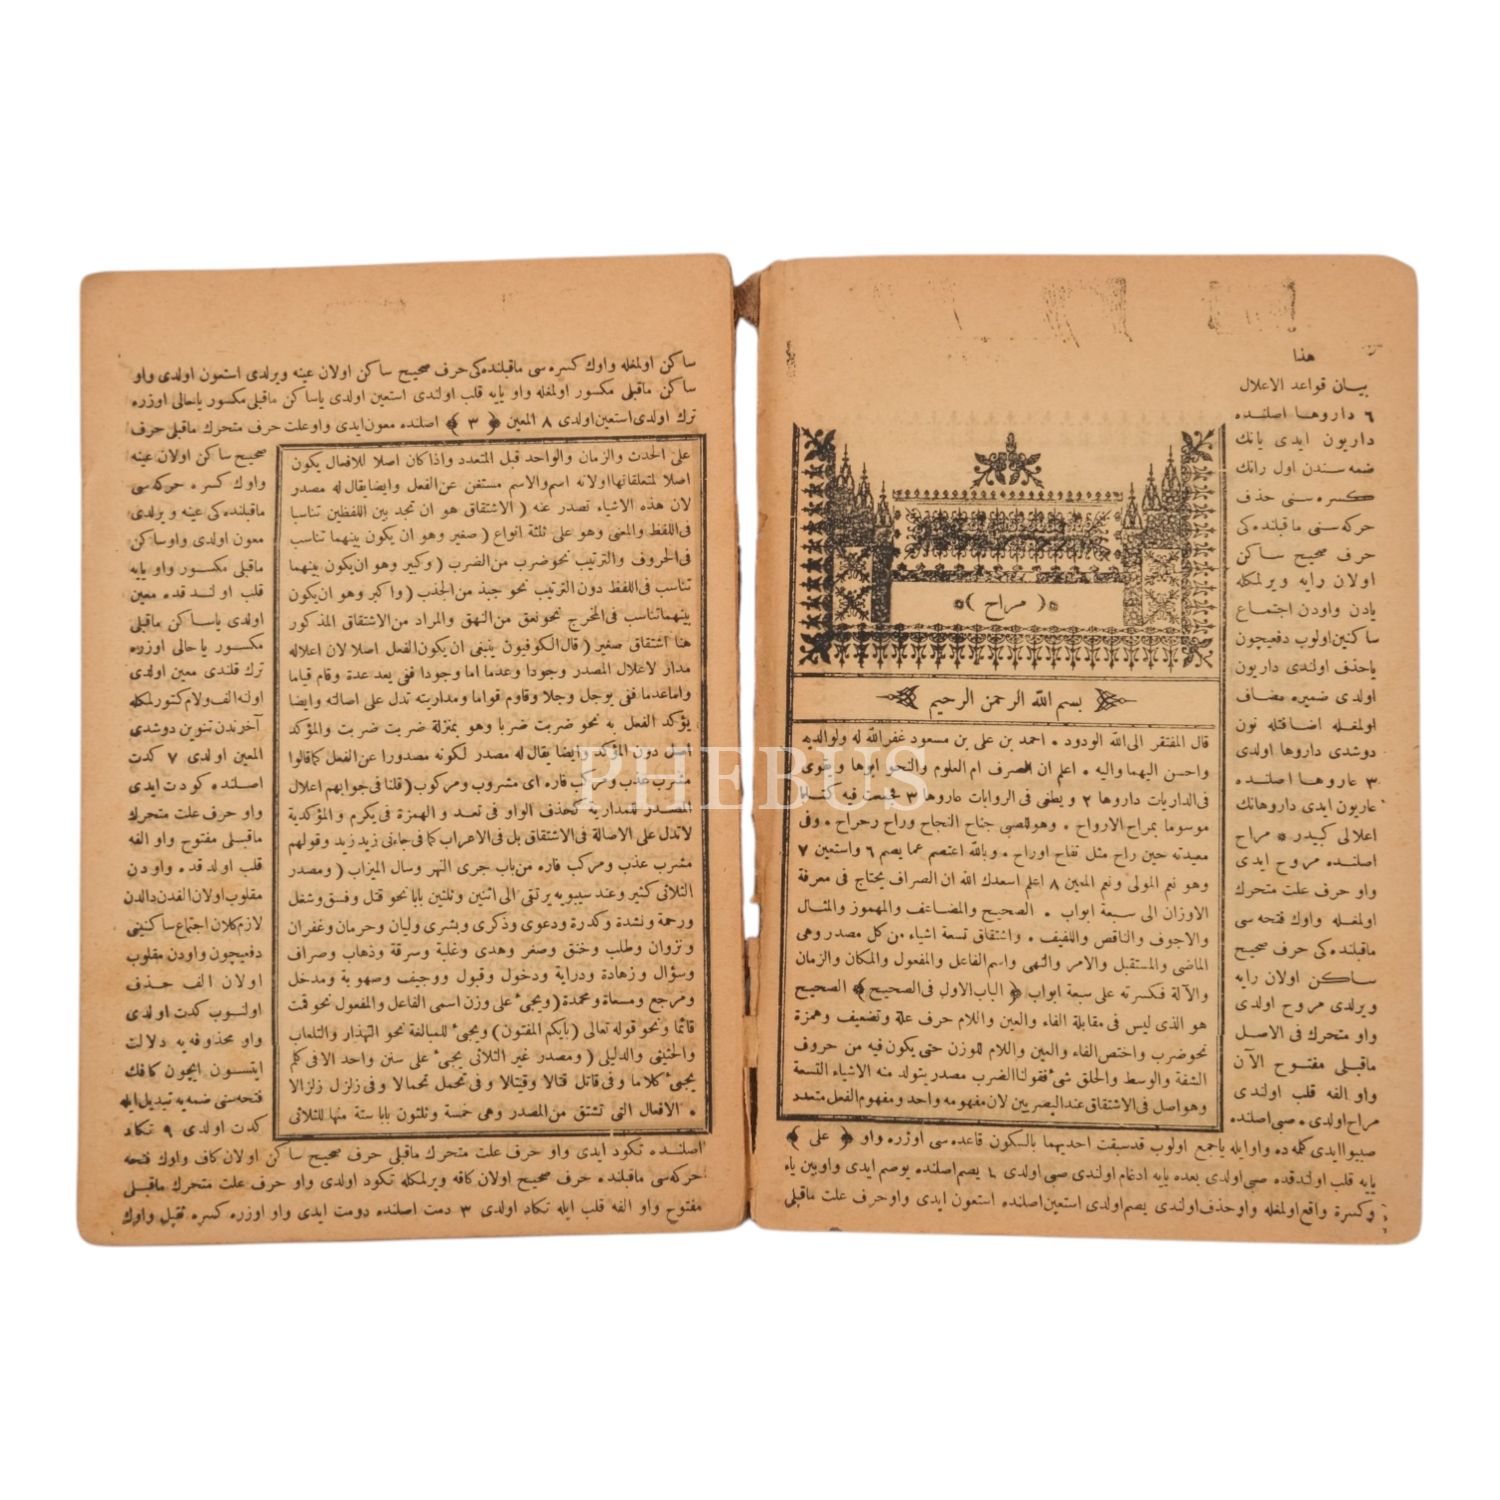 هذا
بيان قواعد الاعلال
٦ داروها اصلنده
داريون ايدى يانك
ضمه سندن اول رانك
كسره سنى حذف
حركه سنى ماقبلنده كى
حرف صحيح ساكن
اولان رايه ويرلمكله
يادن واودن اجتماع
ساكنين اولوب دفعيچون
ياحذف اولندى داريون
اولدى ضميره مضاف
اولمغله اضافتله نون
دوشدى داروها اولدى
٣ عاروها اصلنده
عاريون ايدى داروهانك
اعلالى كبيدر * مراح
اصلنده مروح ايدى
واو حرف علت متحرك
اولمغله واوك فتحه سى
ماقبلنده كى حرف صحيح
ساكن اولان رايه
ويرلدى مروح اولدى
واو متحرك فى الاصل
ماقبلى مفتوح الآن
واو الفه قلب اولندى
مراح اولدى * صبى اصلنده
*( مراح )*
بسم الله الرحمن الرحيم
قال المفتقر الى الله الودود * احمد بن على بن مسعود غفر الله له ولوالديه
واحسن اليهما واليه * اعلم ان الصرف ام العلوم والنحو ابوها ويقوى
فى الداريات داروها ٢ ويطغى فى الروايات عاروها ٣ فجمعت فيه كتابا
موسوما بمراح الارواح * وهو للصبى جناح النجاح وراح رحراح * وفى
معيدته حين راح مثل تفاح اوراح * وبالله اعتصم عما يصم ٦ واستعين ٧
وهو نعم المولى ونعم المعين ٨ اعلم اسعدك الله ان الصراف يحتاج فى معرفة
الاوزان الى سبعة ابواب * الصحيح والمضاعف والمهموز والمثال
والاجوف والناقص واللفيف * واشتقاق تسعة اشياء من كل مصدر وهى
الماضى والمستقبل والامر والنهى واسم الفاعل والمفعول والمكان والزمان
والآلة فكسرته على سبعة ابواب ﴿ الباب الاول فى الصحيح ﴾ الصحيح
هو الذى ليس فى مقابلة الفاء والعين واللام حرف علة وتضعيف وهمزة
نحو ضرب واختص الفاء والعين واللام للوزن حتى يكون فيه من حروف
الشفة والوسط والحلق شئ فقولنا الضرب مصدر يتولد منه الاشياء التسعة
وهو اصل فى الاشتقاق عند البصريين لان مفهومه واحد ومفهوم الفعل متعدد
صبيوا ايدى كلمه ده واو ايله يا جمع اولوب قد سبقت احديهما بالسكون قاعده سى اوزره واو ﴿ على ﴾
يايه قلب اولندقده صبى اولدى بعده يايه ادغام اولندى صبى اولدى ٦ يصم اصلنده يوصم ايدى واو بين ياء
وكسرة واقع اولمغله واو حذف اولندى يصم اولدى استعين اصلنده استعون ايدى واو حرف علت ماقبلى
ساكن اولمغله واوك كسره سى ماقبلنده كى حرف صحيح ساكن اولان عينه ويرلدى استعون اولدى واو
ساكن ماقبلى مكسور اولمغله واو يايه قلب اولندى استعين اولدى يا ساكن ماقبلى مكسور يا حالى اوزره
ترك اولدى استعين اولدى ٨ المعين ﴿ ٣ ﴾ اصلنده معون ايدى واو علت حرف متحرك ماقبلى حرف
صحيح ساكن اولان عينه
واوك كسره حركه سى
ماقبلنده كى عينه ويرلدى
معون اولدى واو ساكن
ماقبلى مكسور واو يايه
قلب اولندقده معين
اولدى يا ساكن ماقبلى
مكسور يا حالى اوزره
ترك قلندى معين اولدى
اولنه الف ولام كتورلمكله
آخرندن تنوين دوشدى
المعين اولدى ٧ كدت
اصلنده كودت ايدى
واو حرف علت متحرك
ماقبلى مفتوح واو الفه
قلب اولدقده * واودن
مقلوب اولان الفدن دالدن
لازم كلان اجتماع ساكنينى
دفعيچون واودن مقلوب
اولان الف حذف
اولنوب كدت اولدى
واو محذوفه يه دلالت
ايتسون ايچون كافك
فتحه سنى ضمه يه تبديل ايله
كدت اولدى ٩ تكاد
على الحدث والزمان والواحد قبل المتعدد واذا كان اصلا للافعال يكون
اصلا لمتعلقاتها اولانه اسم والاسم مستغن عن الفعل وايضا يقال له مصدر
لان هذه الاشياء تصدر عنه ( الاشتقاق هو ان تجد بين اللفظين تناسبا
فى اللفظ والمعنى وهو على ثلثة انواع ( صغير وهو ان يكون بينهما تناسب
فى الحروف والترتيب نحو ضرب من الضرب ( وكبير وهو ان يكون بينهما
تناسب فى اللفظ دون الترتيب نحو جبذ من الجذب ( واكبر وهو ان يكون
بينهما تناسب فى المخرج نحو نعق من النهق والمراد من الاشتقاق المذكور
هنا اشتقاق صغير ( قال الكوفيون ينبغى ان يكون الفعل اصلا لان اعلاله
مدار لاعلال المصدر وجودا وعدما اما وجودا ففى يعد عدة وقام قياما
واما عدما ففى يوجل وجلا وقاوم قواما ومداريته تدل على اصالته وايضا
يؤكد الفعل به نحو ضربت ضربا وهو بمنزلة ضربت ضربت والمؤكد
اصل دون المؤكد وايضا يقال له مصدر لكونه مصدورا عن الفعل كما قالوا
مشرب عذب ومركب فاره اى مشروب ومركوب ( قلنا فى جوابهم اعلال
المصدر للمداربة كحذف الواو فى تعد والهمزة فى يكرم والمؤكدية
لا تدل على الاصالة فى الاشتقاق بل فى الاعراب كما فى جاءنى زيد زيد وقولهم
مشرب عذب ومركب فاره من باب جرى النهر وسال الميزاب ( ومصدر
الثلاثى كثير وعند سيبويه يرتقى الى اثنين وثلثين بابا نحو قتل وفسق وشغل
ورحمة ونشدة وكدرة ودعوى وذكرى وبشرى وليان وحرمان وغفران
ونزوان وطلب وخنق وصغر وهدى وغلبة وسرقة وذهاب وصراف
وسؤال وزهادة ودراية ودخول وقبول ووجيف وصهوبة ومدخل
ومرجع ومسعاة ومحمدة ( ويجئ على وزن اسمى الفاعل والمفعول نحو قمت
قائما ونحو قوله تعالى ( بايكم المفتون ) ويجئ للمبالغة نحو التهذار والتلعاب
والحثيثى والدليلى ( ومصدر غير الثلاثى يجئ على سنن واحد الا فى كلم
يجئ كلاما وفى قاتل قتالا وقيتالا وفى تحمل تحمالا وفى زلزل زلزالا
* الافعال التى تشتق من المصدر وهى خمسة وثلثون بابا ستة منها للثلاثى
اصلنده تكود ايدى واو حرف علت متحرك ماقبلى حرف صحيح ساكن اولان كاف واوك فتحه
حركه سى ماقبلنده حرف صحيح اولان كافه ويرلمكله تكود اولدى واو حرف علت متحرك ماقبلى
مفتوح واو الفه قلب ايله تكاد اولدى ٣ دمت اصلنده دومت ايدى واو اوزره كسره ثقيل واوك
PHEBUS